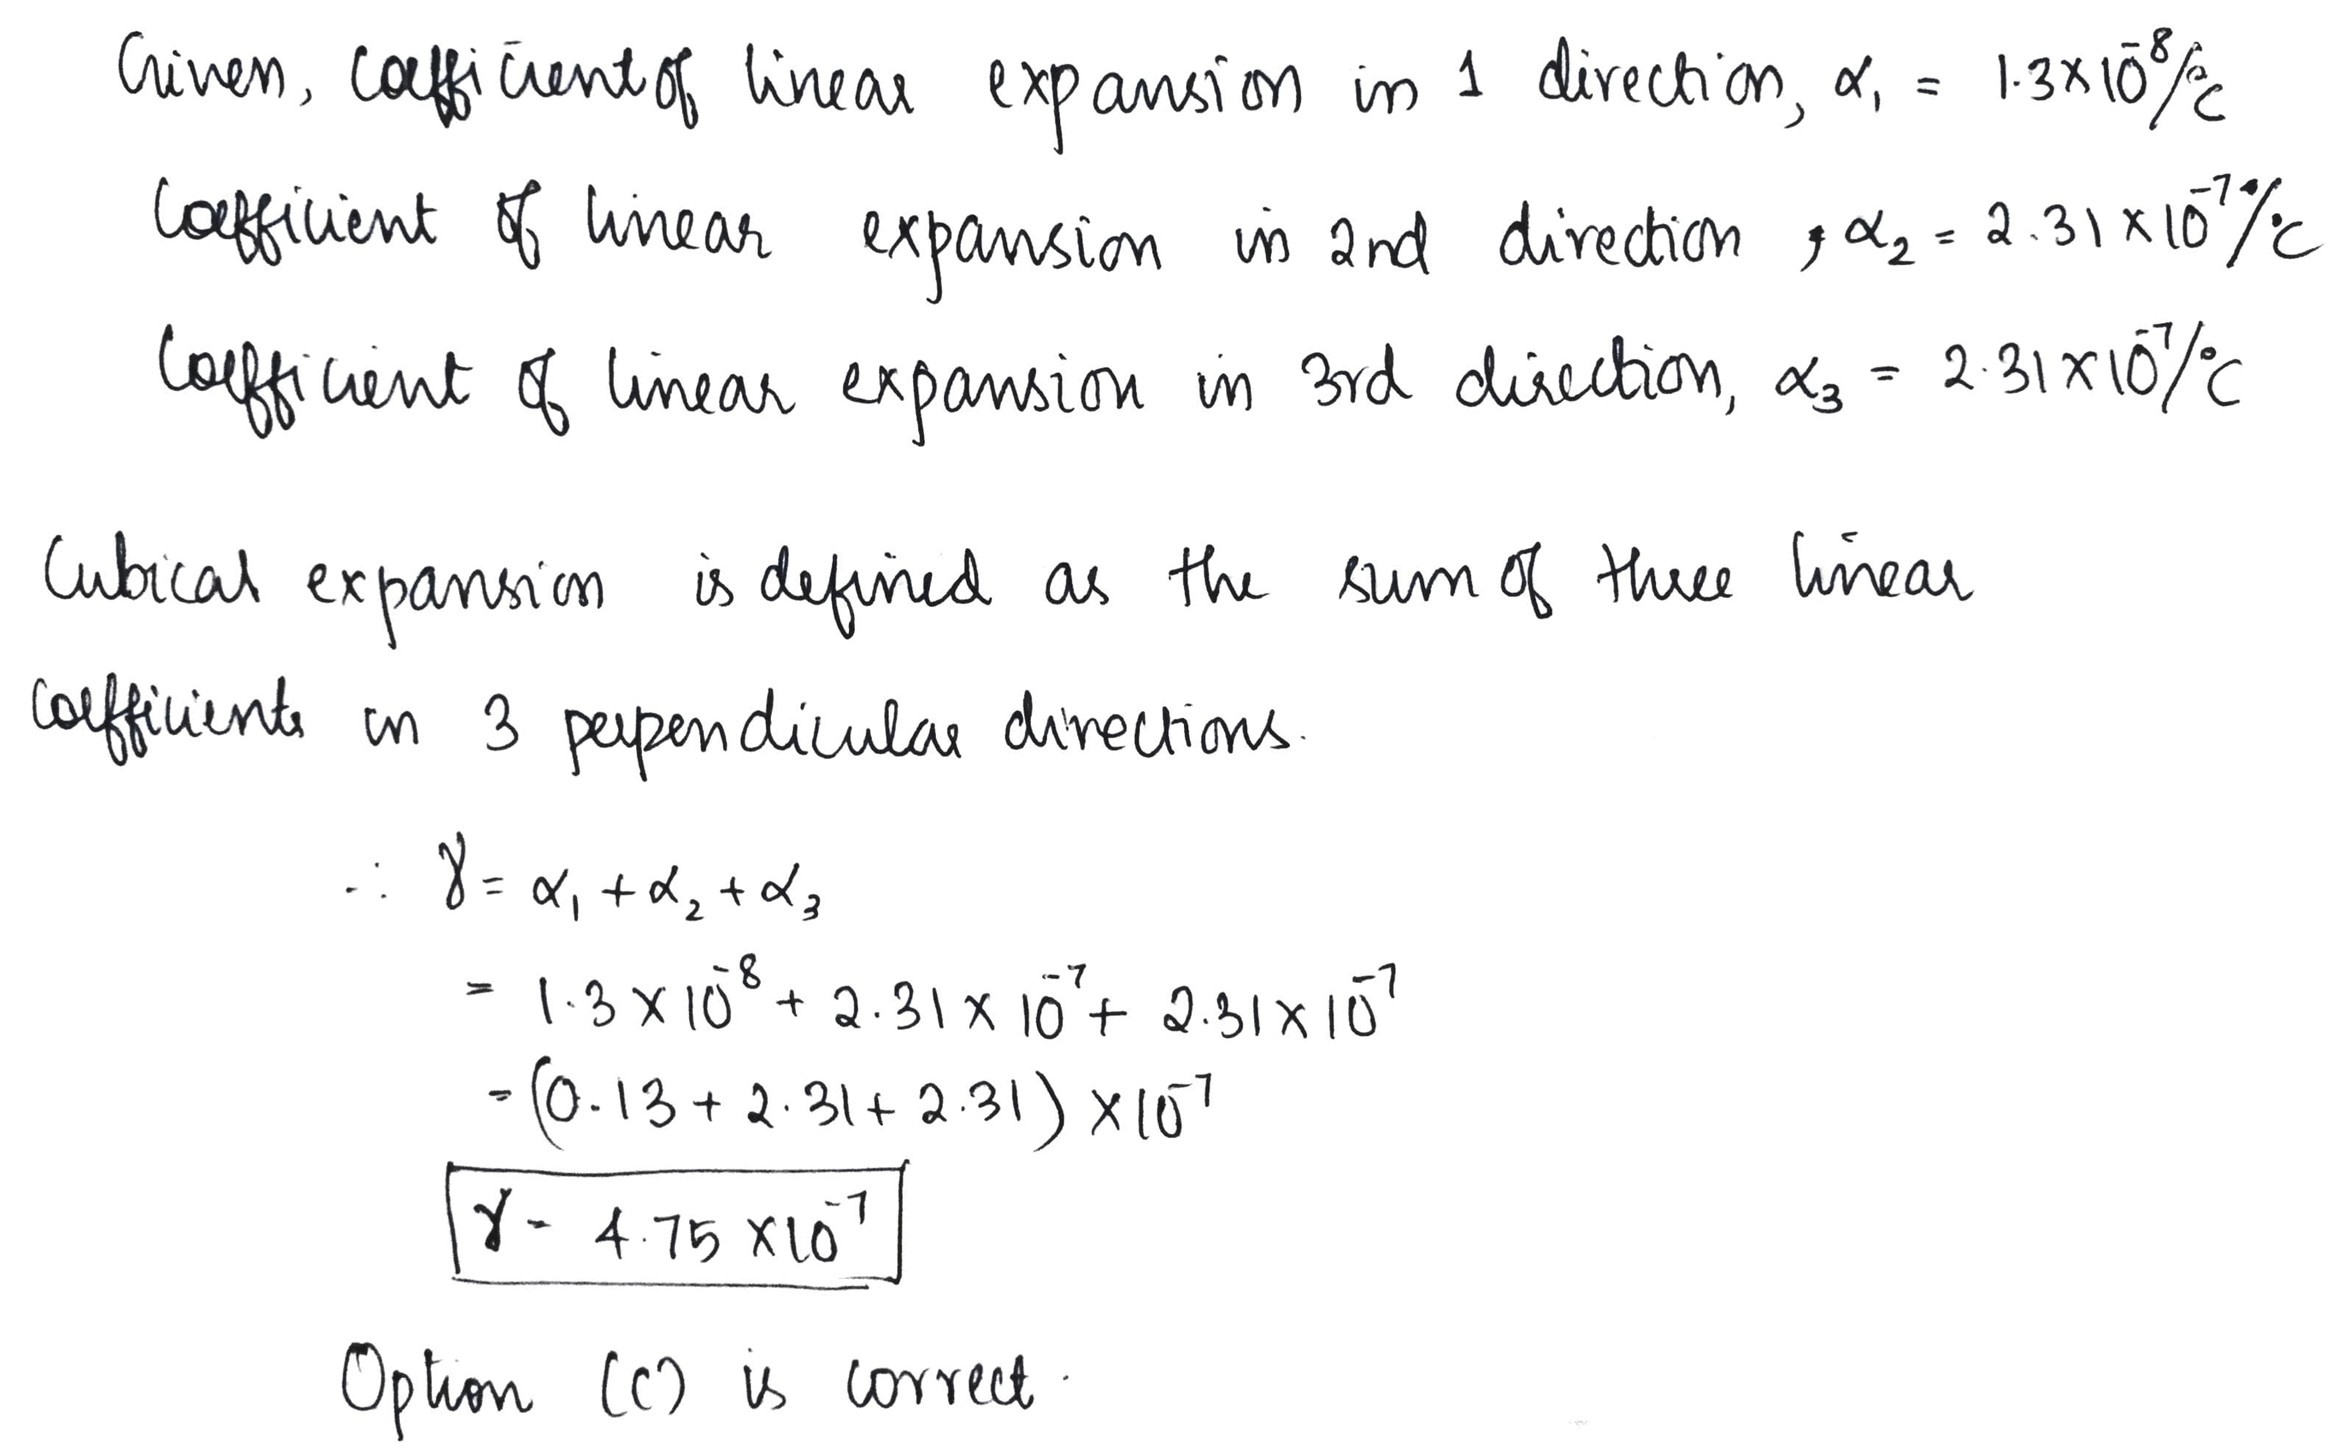 Given, Coefficient of linear expansion in 1 direction, α₁ = 1.3×10⁻⁸/°C
Coefficient of linear expansion in 2nd direction, α₂ = 2.31×10⁻⁷/°C
Coefficient of linear expansion in 3rd direction, α₃ = 2.31×10⁻⁷/°C
Cubical expansion is defined as the sum of three linear
coefficients in 3 perpendicular directions.
∴ γ = α₁ + α₂ + α₃
= 1.3 × 10⁻⁸ + 2.31 × 10⁻⁷ + 2.31 × 10⁻⁷
= (0.13 + 2.31 + 2.31) × 10⁻⁷
γ = 4.75 × 10⁻⁷
Option (C) is correct.